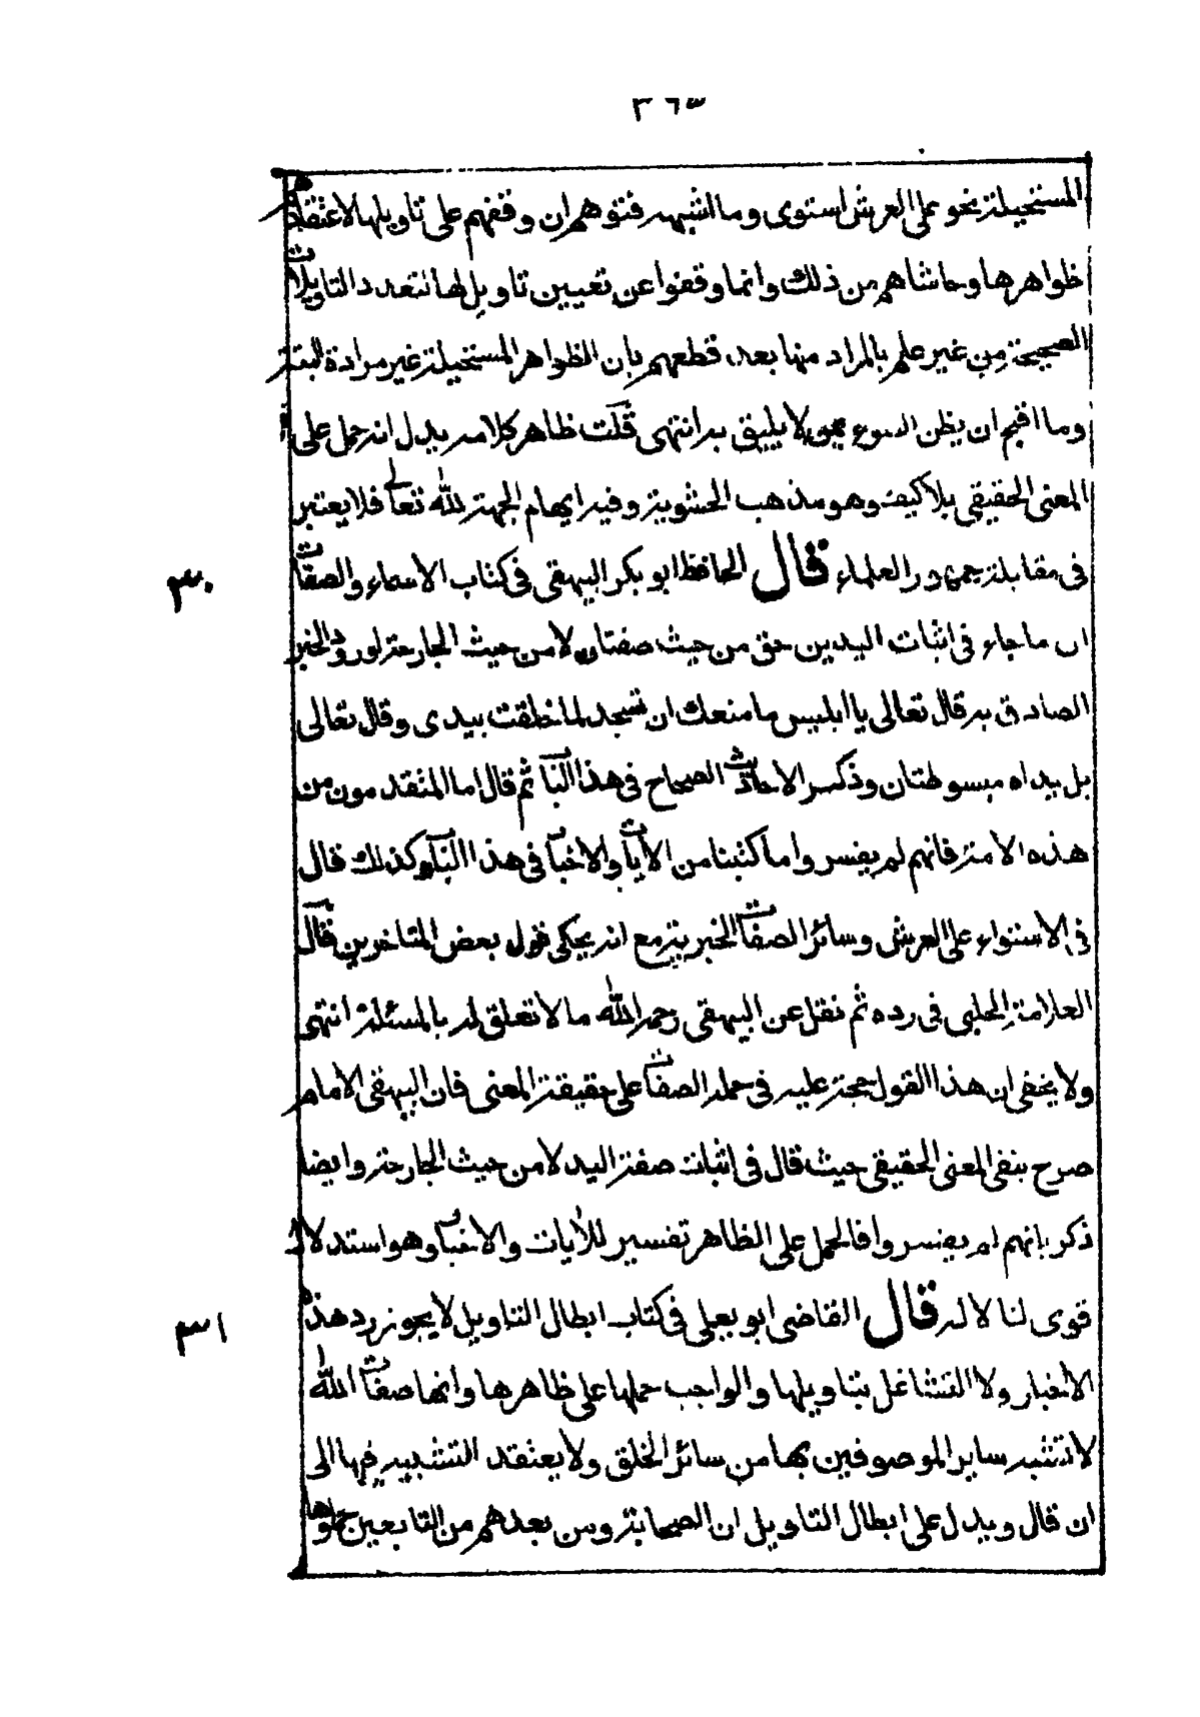 ٣٦٥
المستحيلة نحو على العرش استوى وما اشبهه فتوهم ان وقفهم على تاويلها لاعتقادهم
ظواهرها وحاشاهم من ذلك وانما وقفوا عن تعيين تاويل لها لتعدد التاويلات
الصحيحة من غير علم بالمراد منها بعد قطعهم بان الظواهر المستحيلة غير مرادة البتة
وما اقبح ان يظن السوء بمن لا يليق به انتهى قلت ظاهر كلامه يدل انه حمل على
المعنى الحقيقي بلا كيف وهو مذهب الحشوية وفيه ايهام الجهة لله تعالى فلا يعتبر
في مقابلة جمهور العلماء قال الحافظ ابو بكر البيهقي في كتاب الاسماء والصفات
٣٠
ان ما جاء في اثبات اليدين حق من حيث صفتان لا من حيث الجارحة لورود الخبر
الصادق به قال تعالى يا ابليس ما منعك ان تسجد لما خلقت بيدى وقال تعالى
بل يداه مبسوطتان وذكر الاحاديث الصحاح في هذا الباب ثم قال اما المتقدمون من
هذه الامة فانهم لم يفسروا ما كتبنا من الايات والاخبار في هذا الباب وكذلك قال
في الاستواء على العرش وسائر الصفات الخبرية مع انه يحكى قول بعض المتاخرين قال
العلامة الحلبي في رده ثم نقل عن البيهقي رحمه الله ما لا تعلق له بالمسئلة انتهى
ولا يخفى ان هذا القول حجة عليه في حمله الصفات على حقيقة المعنى فان البيهقي الامام
صرح بنفي المعنى الحقيقي حيث قال في اثبات صفة اليد لا من حيث الجارحة وايضا
ذكر بانهم لم يفسروا فالحمل على الظاهر تفسير للأيات والاخبار وهو استدلال
قوى لنا لا له قال القاضى ابو يعلى في كتاب ابطال التاويل لا يجوز رد هذه
٣١
الاخبار ولا التشاغل بتاويلها والواجب حملها على ظاهرها وانها صفات الله
لا تشبه ساير الموصوفين بها من سائر الخلق ولا يعتقد التشبيه فيها الى
ان قال ويدل على ابطال التاويل ان الصحابة ومن بعدهم من التابعين حملوها